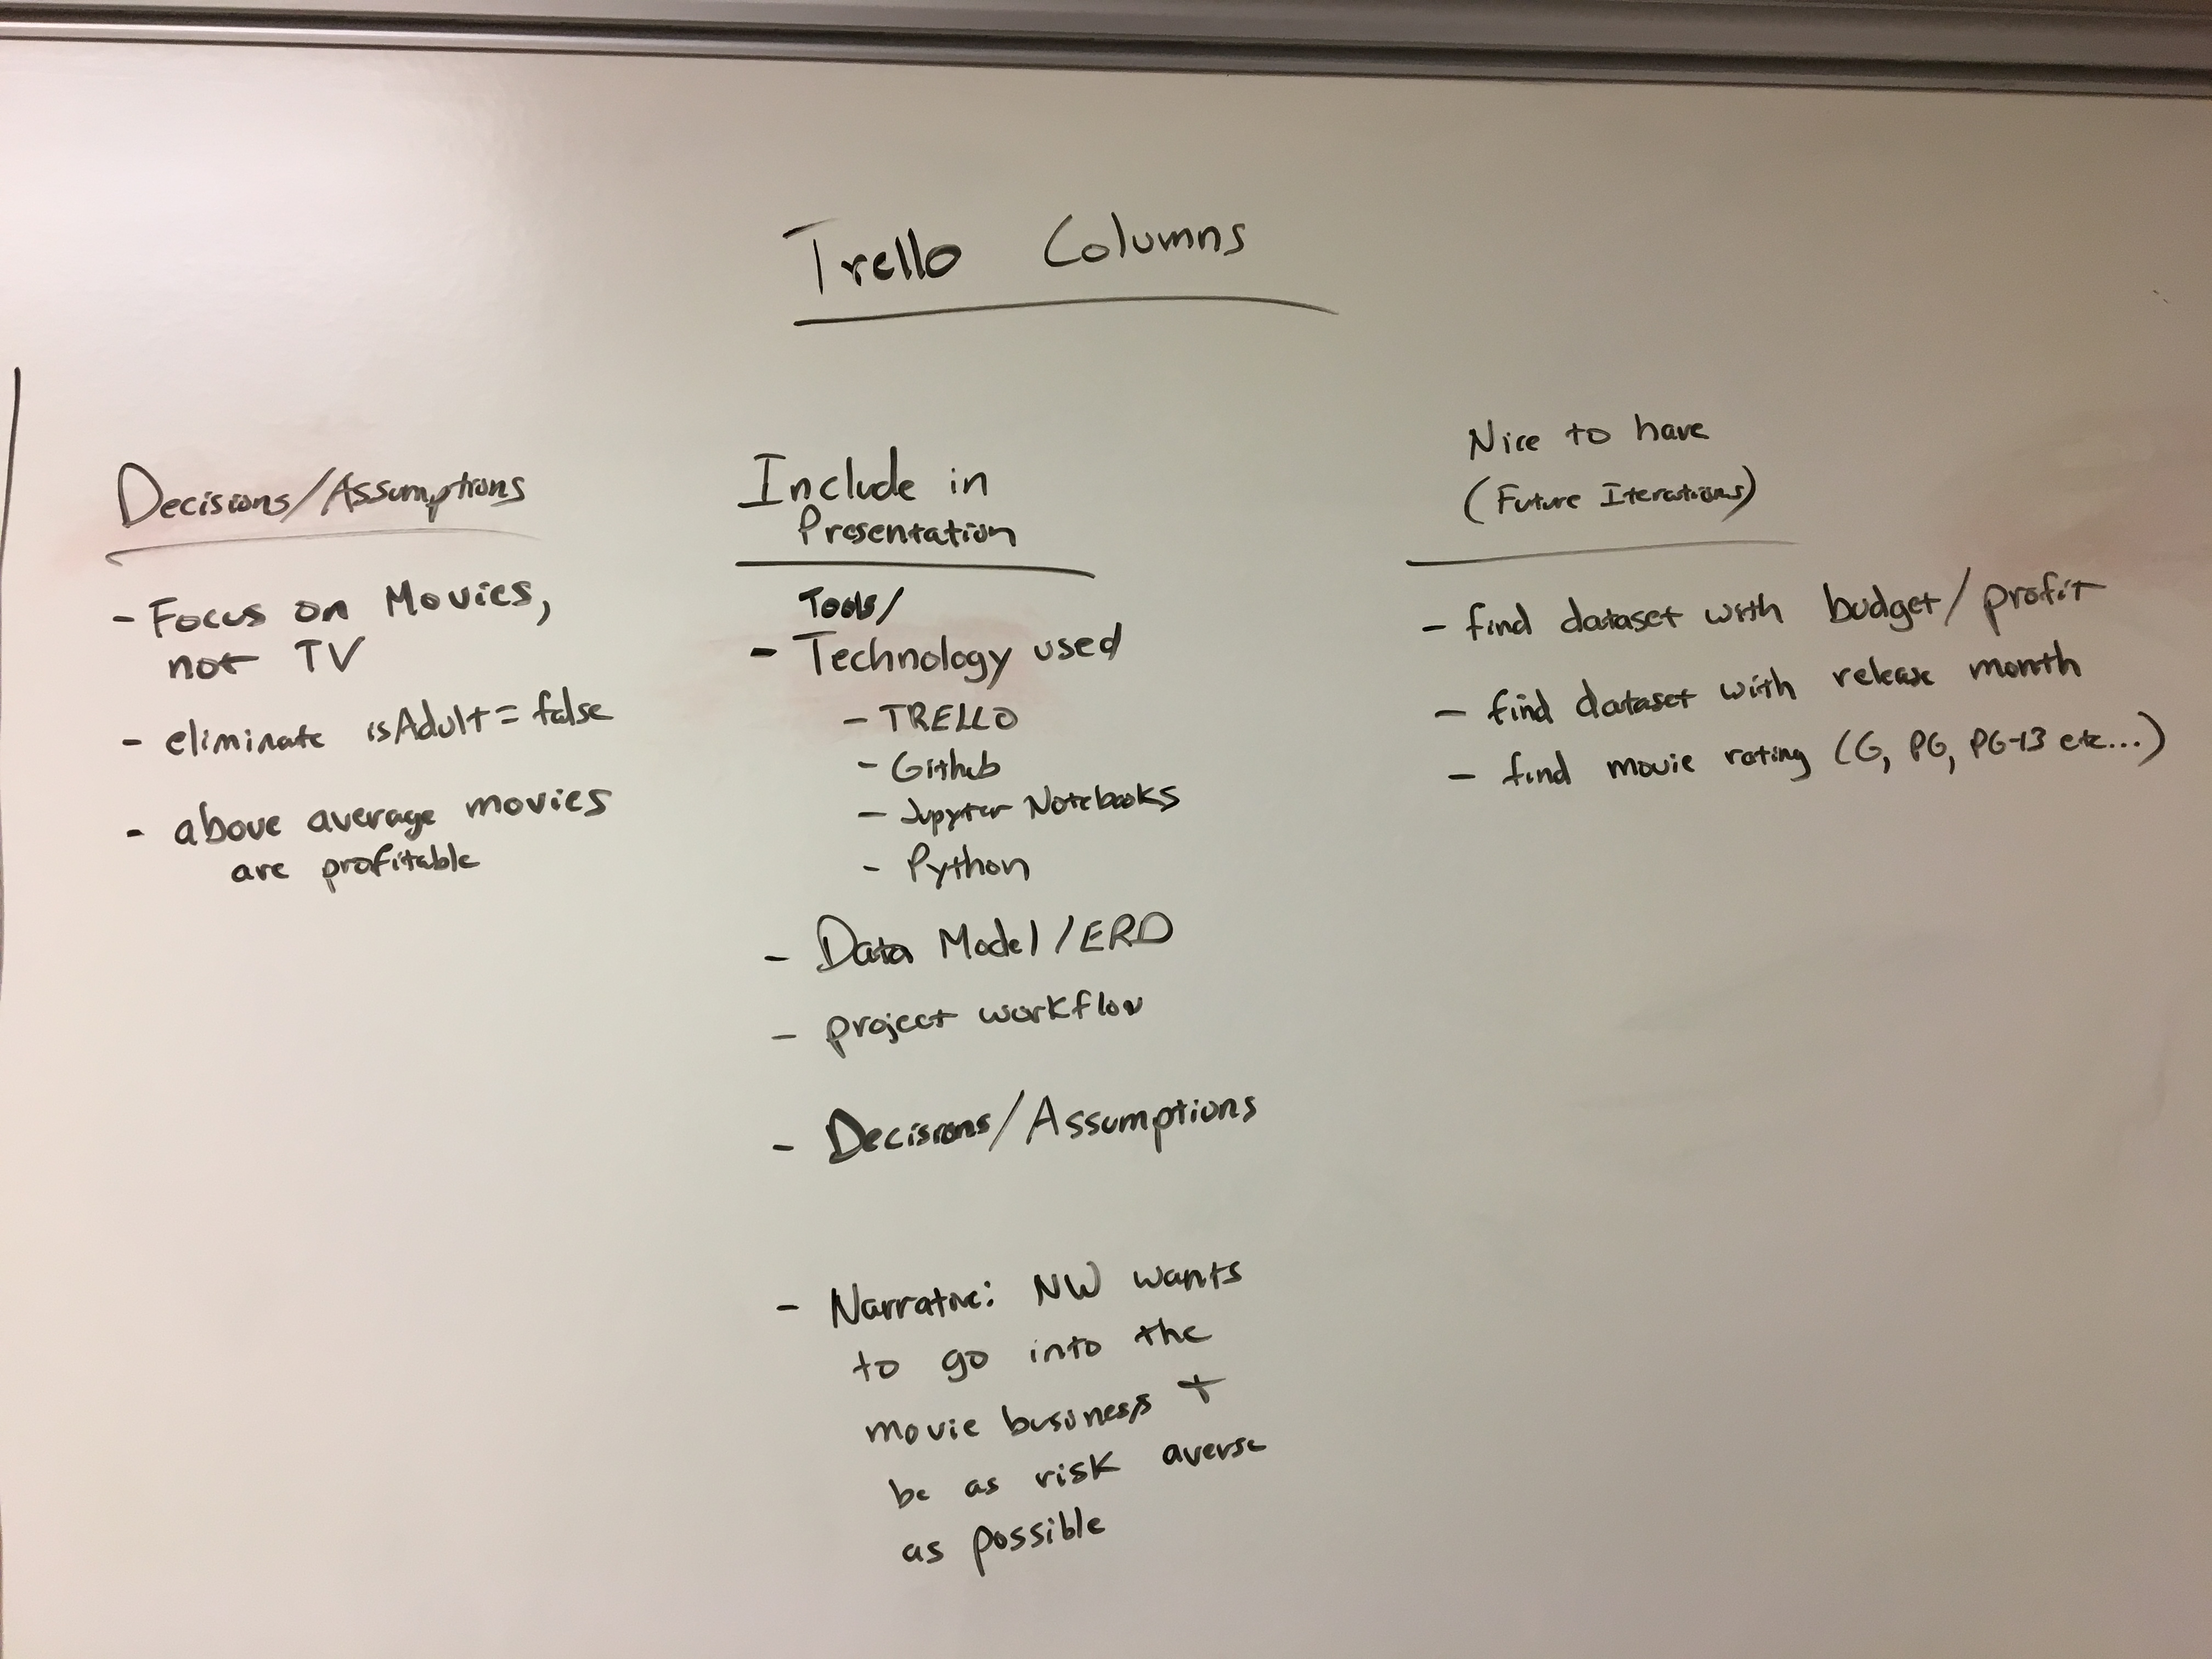 Trello Columns
Decisions/Assumptions
- Focus on Movies,
not TV
- eliminate isAdult = false
- above average movies
are profitable
Include in
Presentation
Tools/
- Technology used
- TRELLO
- Github
- Jupyter Notebooks
- Python
- Data Model/ERD
- project workflow
- Decisions/Assumptions
- Narrative: NW wants
to go into the
movie business +
be as risk averse
as possible
Nice to have
(Future Iterations)
- find dataset with budget/profit
- find dataset with release month
- find movie rating (G, PG, PG-13 etc...)